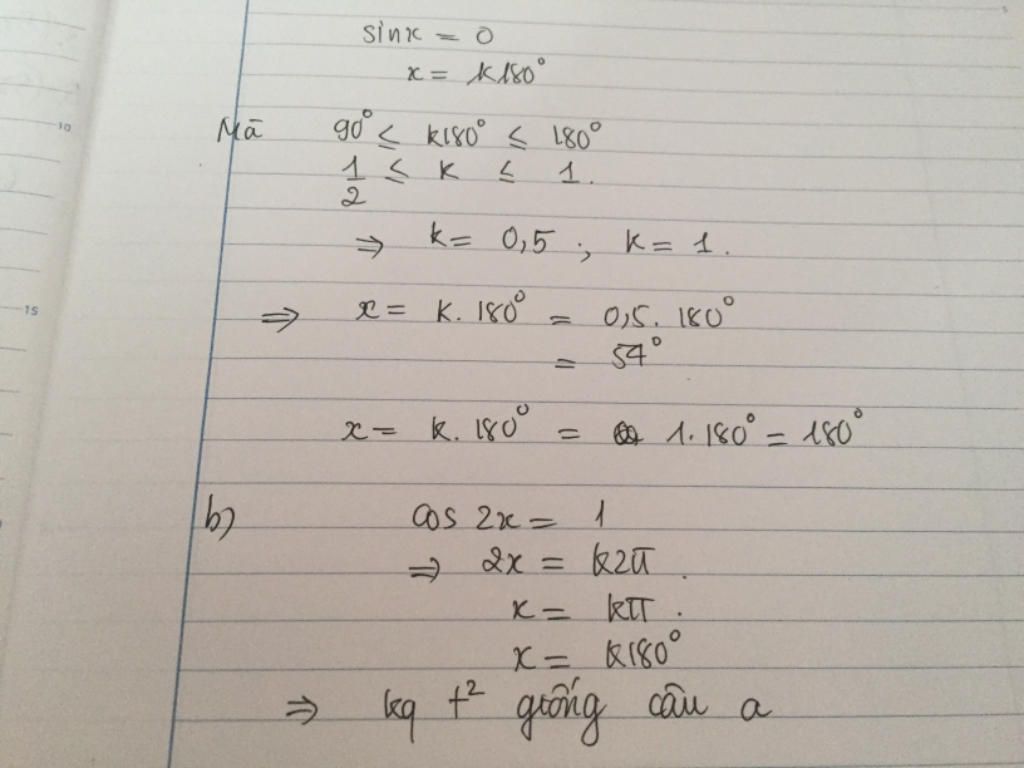 sinx = 0
x = k180°
10
Mà 90° ≤ k180° ≤ 180°
1/2 ≤ k ≤ 1.
⇒ k = 0,5 ; k = 1.
15
⇒ x = k. 180° = 0,5. 180°
= 54°
x = k. 180° = 1. 180° = 180°
b) cos 2x = 1
⇒ 2x = k2π.
x = kπ.
x = k180°
⇒ kq t² giống câu a